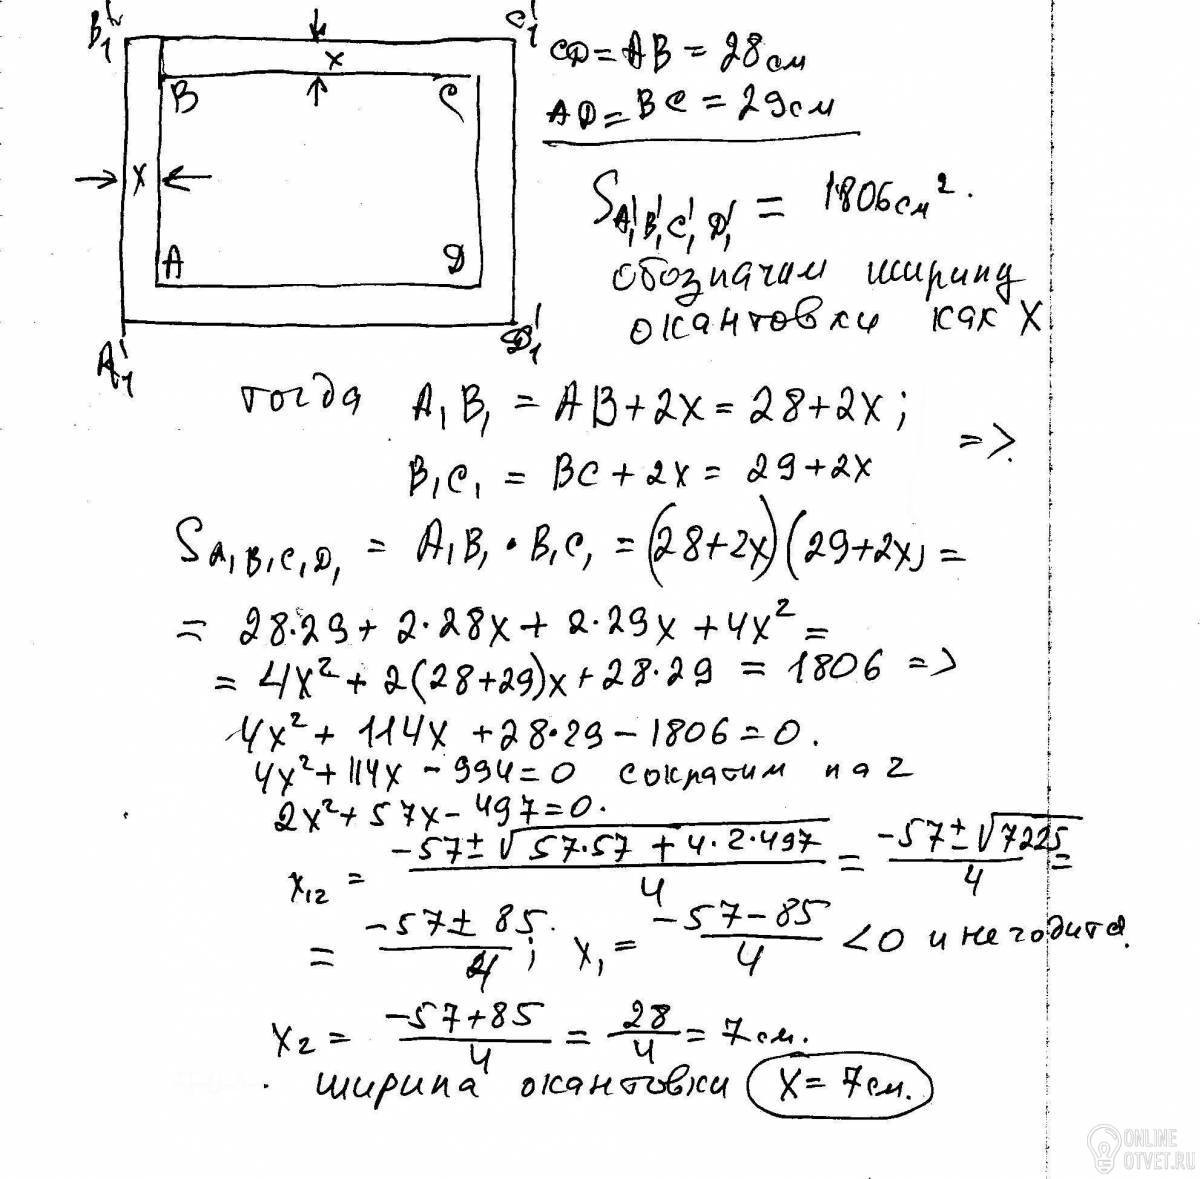 B₁' C₁'
x
B C
x
A D
A₁' D₁'
CD = AB = 28 см
AD = BC = 29 см
S A₁'B₁'C₁'D₁' = 1806 см².
обозначим ширину
окантовки как X
тогда A₁B₁ = AB + 2x = 28 + 2x; =>
B₁C₁ = BC + 2x = 29 + 2x
S A₁B₁C₁D₁ = A₁B₁ • B₁C₁ = (28+2x)(29+2x) =
= 28·29 + 2·28x + 2·29x + 4x² =
= 4x² + 2(28+29)x + 28·29 = 1806 =>
4x² + 114x + 28·29 - 1806 = 0.
4x² + 114x - 994 = 0 сократим на 2
2x² + 57x - 497 = 0.
x₁₂ = (-57 ± √(57·57 + 4·2·497))/4 = (-57 ± √7225)/4 =
= (-57 ± 85)/4; x₁ = (-57-85)/4 < 0 и не годится.
x₂ = (-57+85)/4 = 28/4 = 7 см.
ширина окантовки X = 7 см.
ONLINE
OTVET.RU